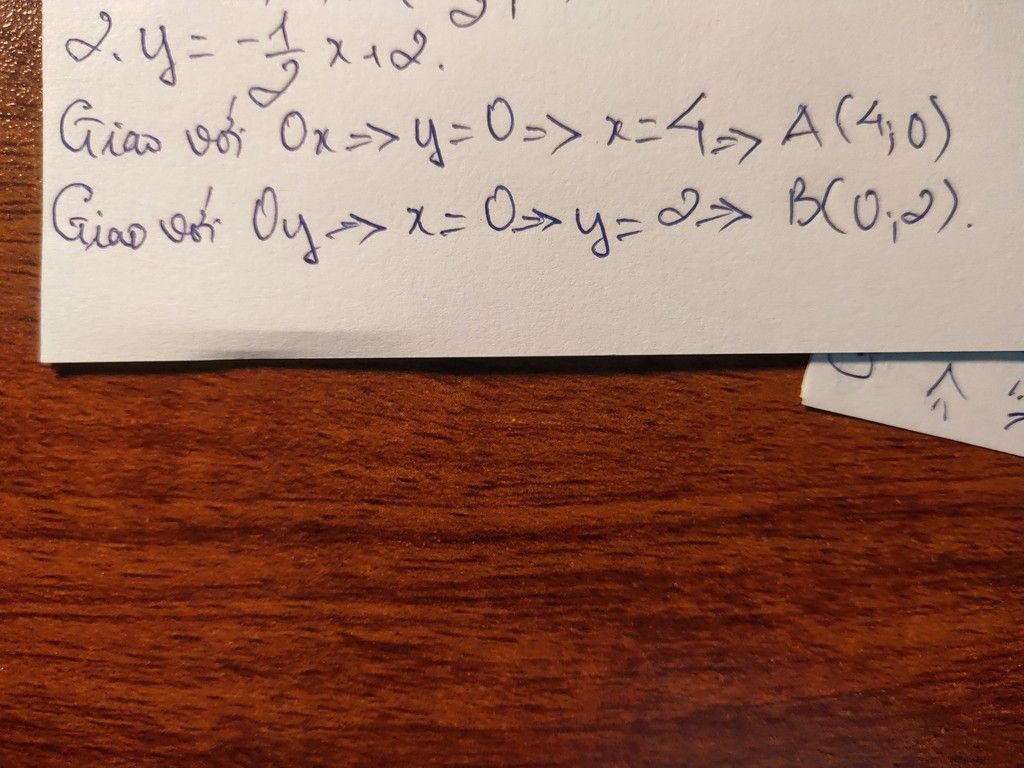 2. y = -1/2 x + 2.
Giao với Ox => y = 0 => x = 4 => A(4;0)
Giao với Oy => x = 0 => y = 2 => B(0;2).